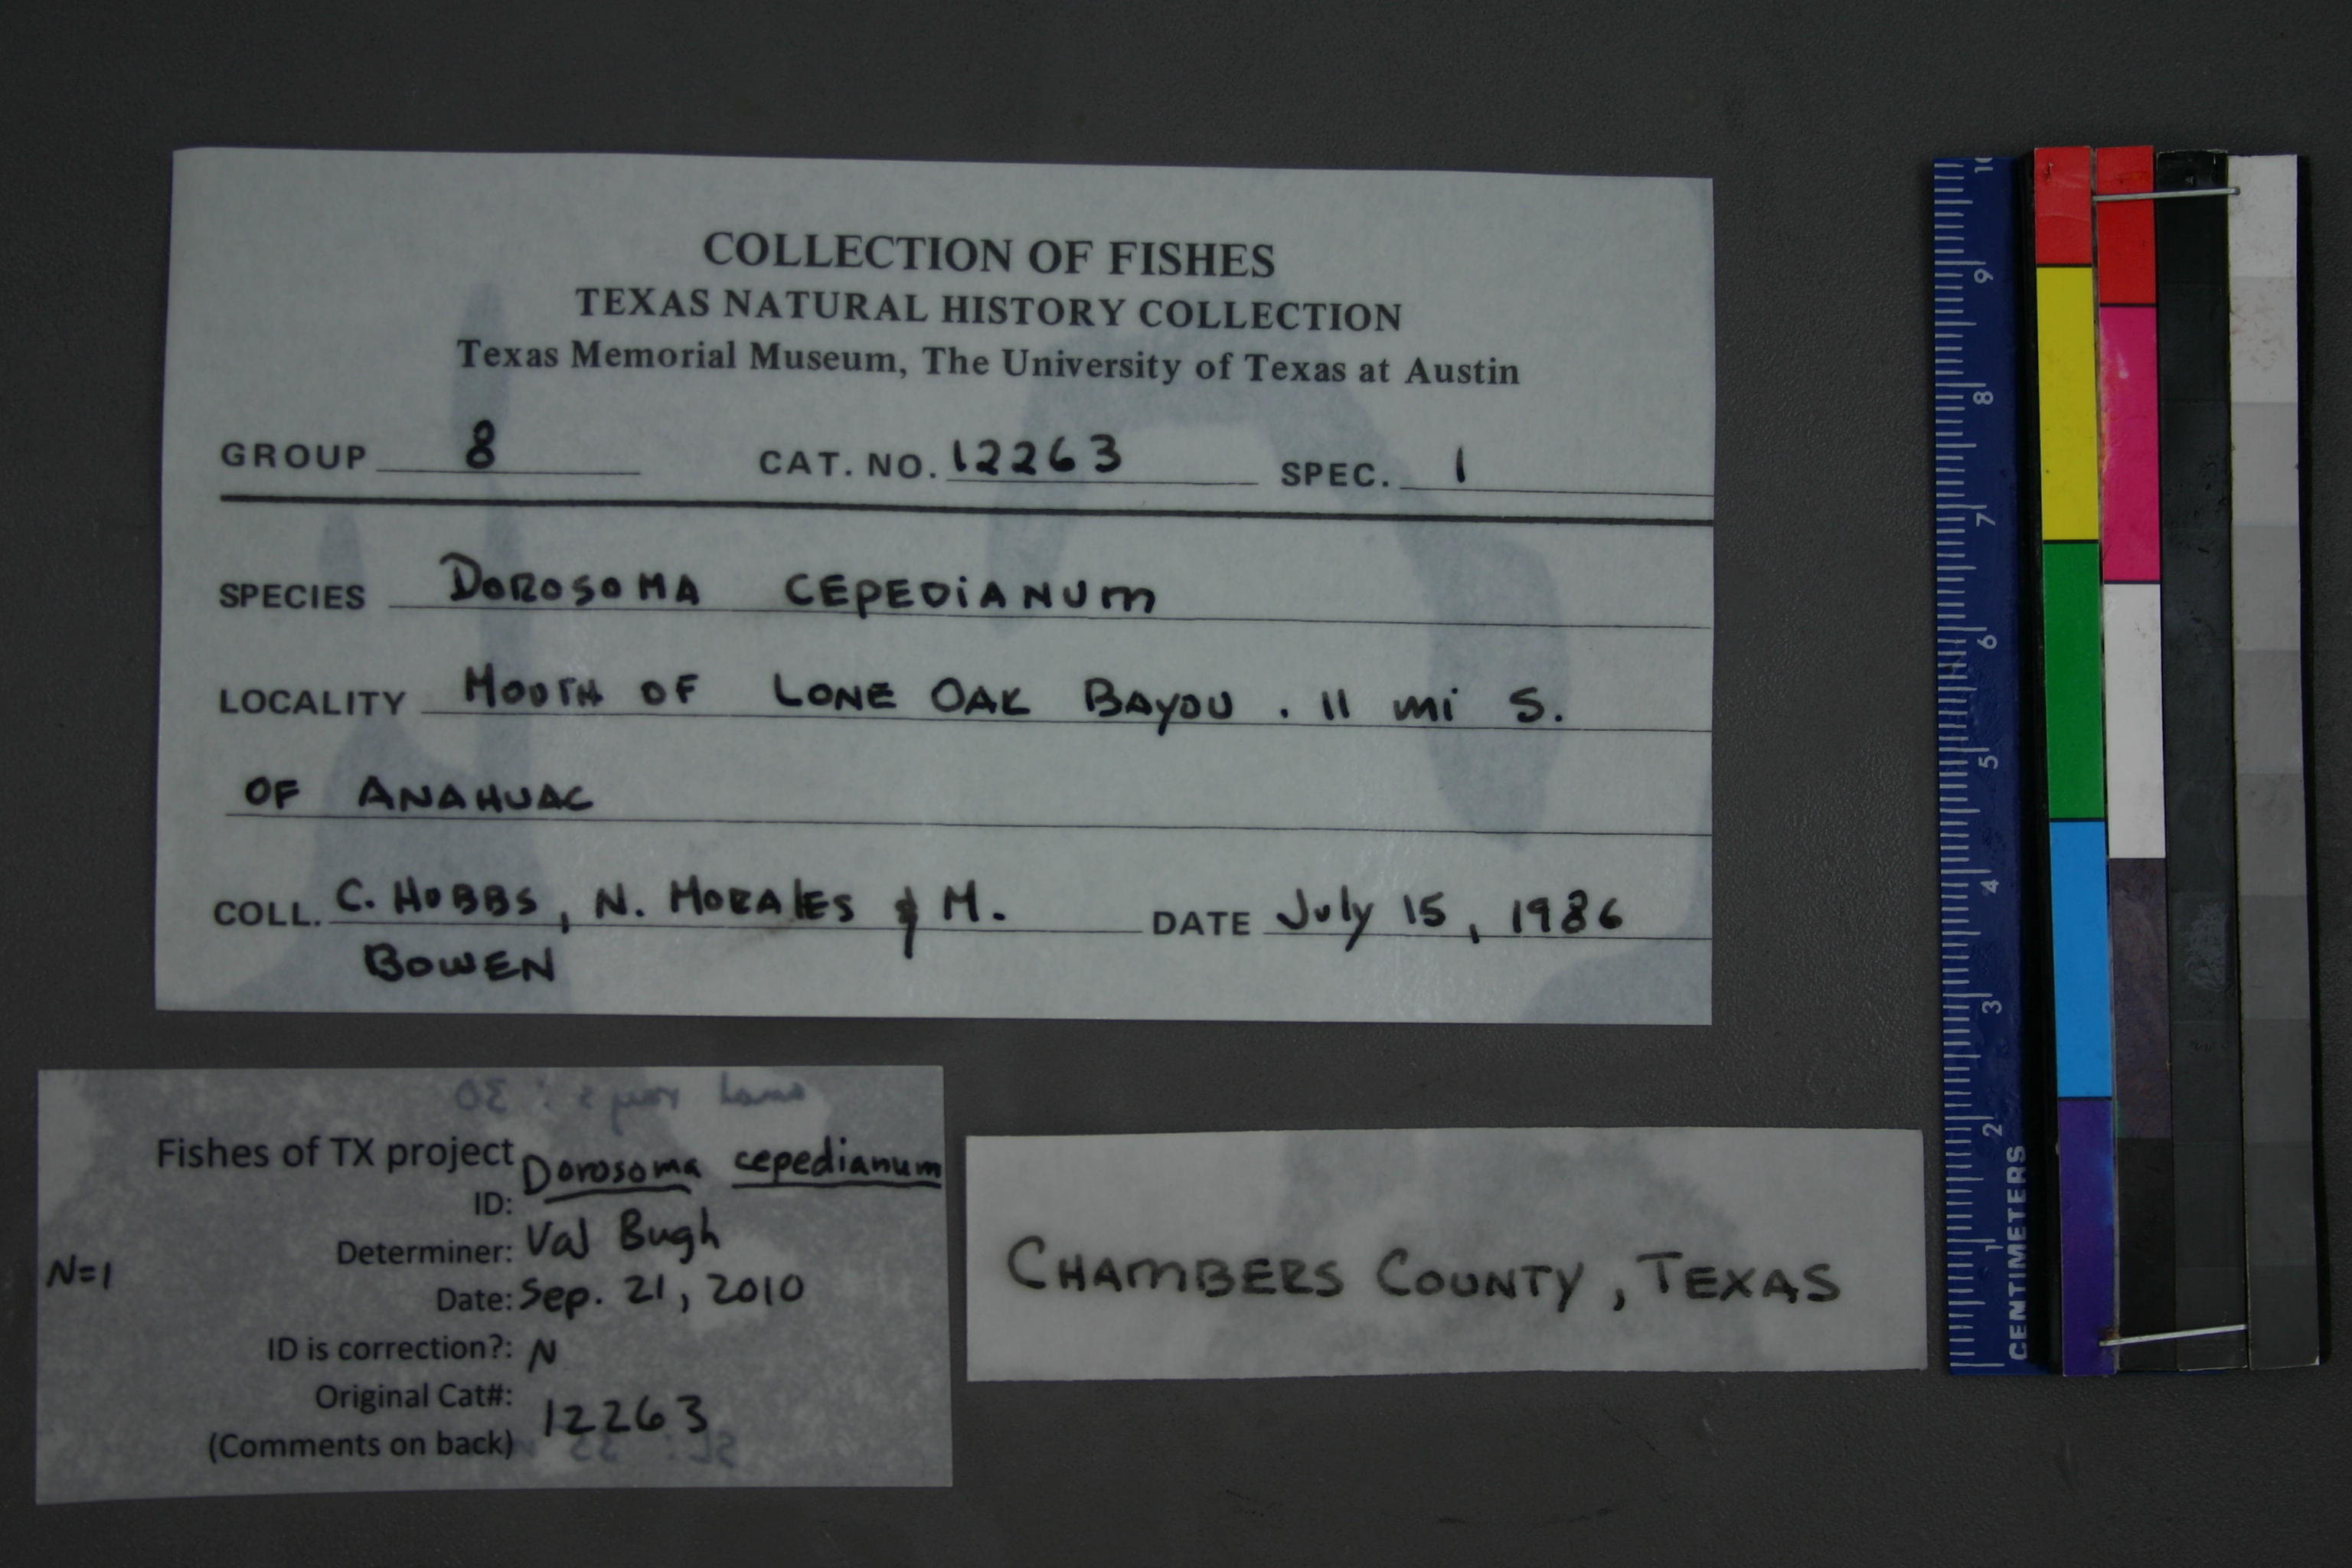 COLLECTION OF FISHES
TEXAS NATURAL HISTORY COLLECTION
Texas Memorial Museum, The University of Texas at Austin
GROUP 8 CAT. NO. 12263 SPEC. 1
SPECIES DOROSOMA CEPEDIANUM
LOCALITY MOUTH OF LONE OAK BAYOU . 11 mi S.
OF ANAHUAC
COLL. C. HUBBS, N. MORALES & M. DATE July 15, 1986
BOWEN
anal rays : 30
Fishes of TX project
ID: Dorosoma cepedianum
Determiner: Val Bugh
N=1
Date: Sep. 21, 2010
ID is correction?: N
Original Cat#: 12263
(Comments on back)
SL: 55
CHAMBERS COUNTY, TEXAS
10
9
8
7
6
5
4
3
2
1
CENTIMETERS